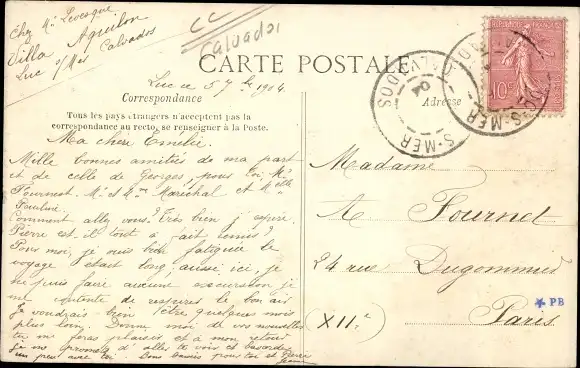 Chez Mr Levesque
Villa Aquilon
Luc s/Mer Calvados
CC
Calvados
CARTE POSTALE
Luc ce 5 7bre 1904
Correspondance
Adresse
Tous les pays étrangers n'acceptent pas la
correspondance au recto, se renseigner à la Poste.
Ma chère Emélie.
Mille bonnes amitiés de ma part
et de celle de Georges, pour toi, Mr
Fournet. Mr et Mme Maréchal et Melle
Pauline.
Comment allez vous? Très bien j'espère
Pierre est il tout à fait remis?
Pour moi, je suis bien fatiguée le
voyage était long; aussi ici, je
ne puis faire aucune excursion, je
me contente de respirer le bon air
Je voudrais bien être quelques mois
plus loin. Donne moi de vos nouvelles
tu me feras plaisir et à mon retour
je me promets d'aller te voir et bavarder
un peu avec toi. Bons baisers pour toi et Pierre
Madame
A Fournet
24 rue Dugommier
Paris
(XIIe)
PB
RÉPUBLIQUE FRANÇAISE
10
S-MER
CALVADOS
04
S-MER